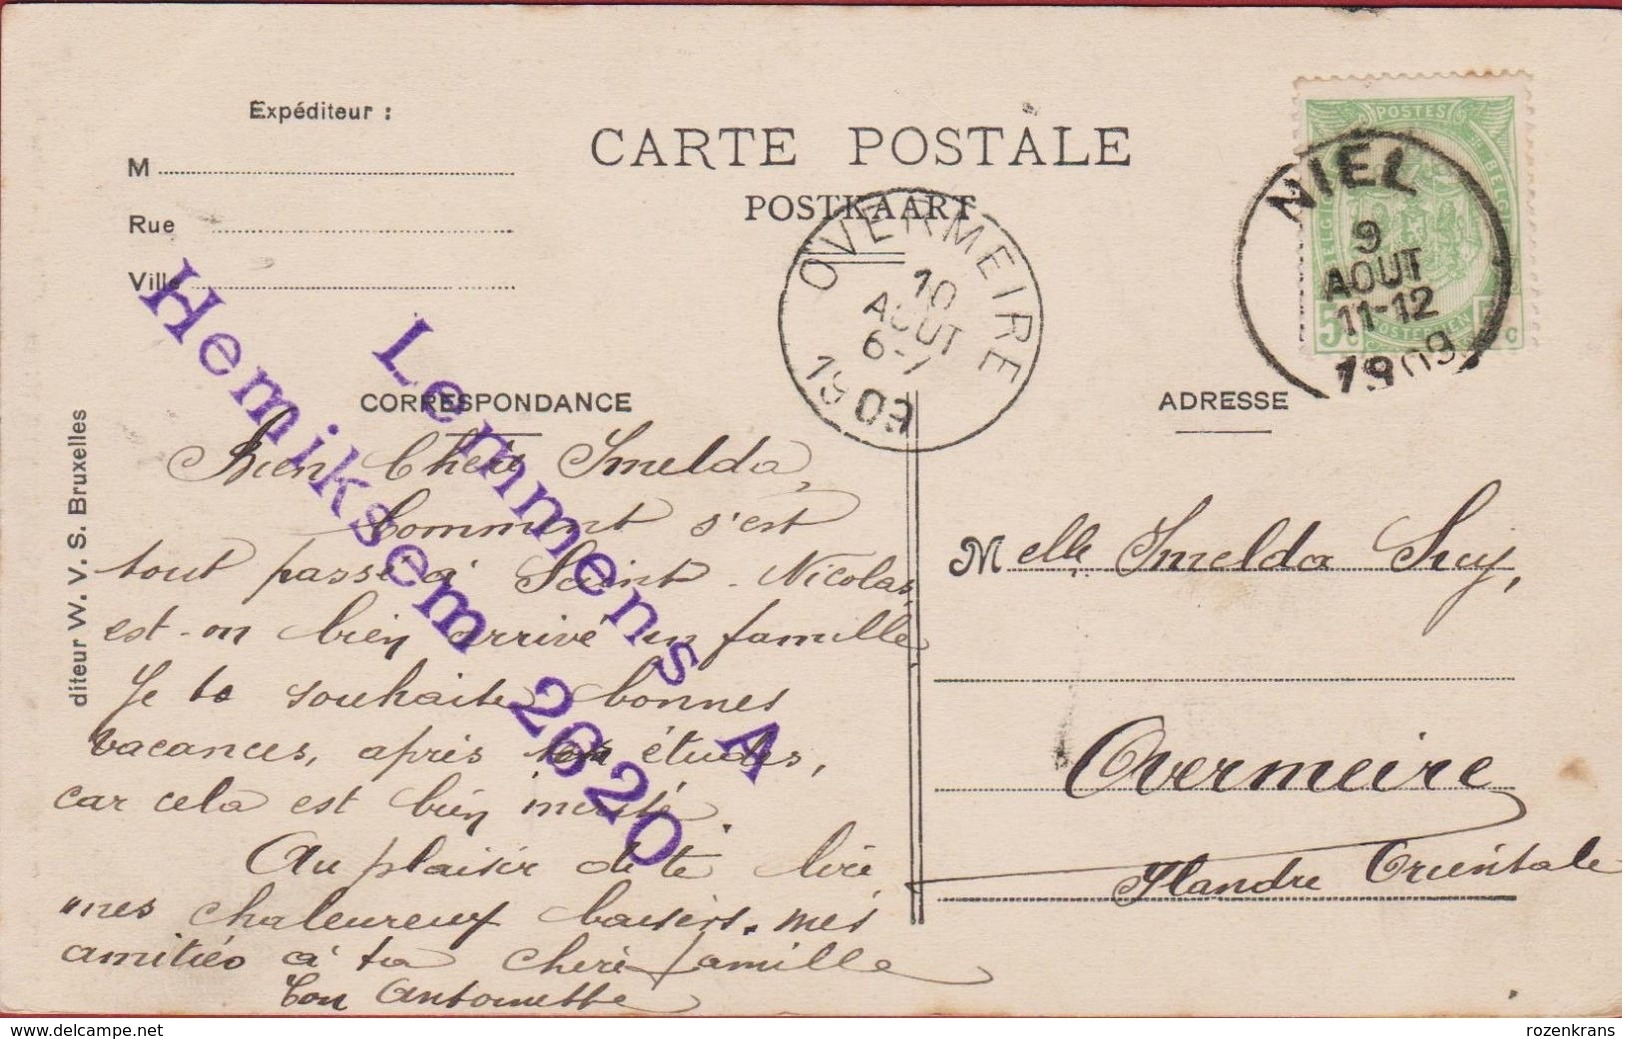 Expéditeur :
M
Rue
Ville
CARTE POSTALE
POSTKAART
CORRESPONDANCE
ADRESSE
POSTES
BELGIQUE
BELGIË
POSTERIJEN
5c
NIEL
9
AOUT
11-12
1909
OVERMEIRE
10
AOUT
6-7
1909
Lemmens A
Hemiksem 2620
diteur W. V. S. Bruxelles
Bien Chère Imelda,
Comment s'est
tout passé à Saint-Nicolas,
est-on bien arrivé en famille,
Je te souhaite bonnes
vacances, après tes études,
car cela est bien mérité.
Au plaisir de te lire
mes chaleureux baisers. mes
amitiés à ta chère famille
Ton Antoinette
Melle Imelda
Overmeire
Flandre Orientale
delcampe.net
rozenkrans